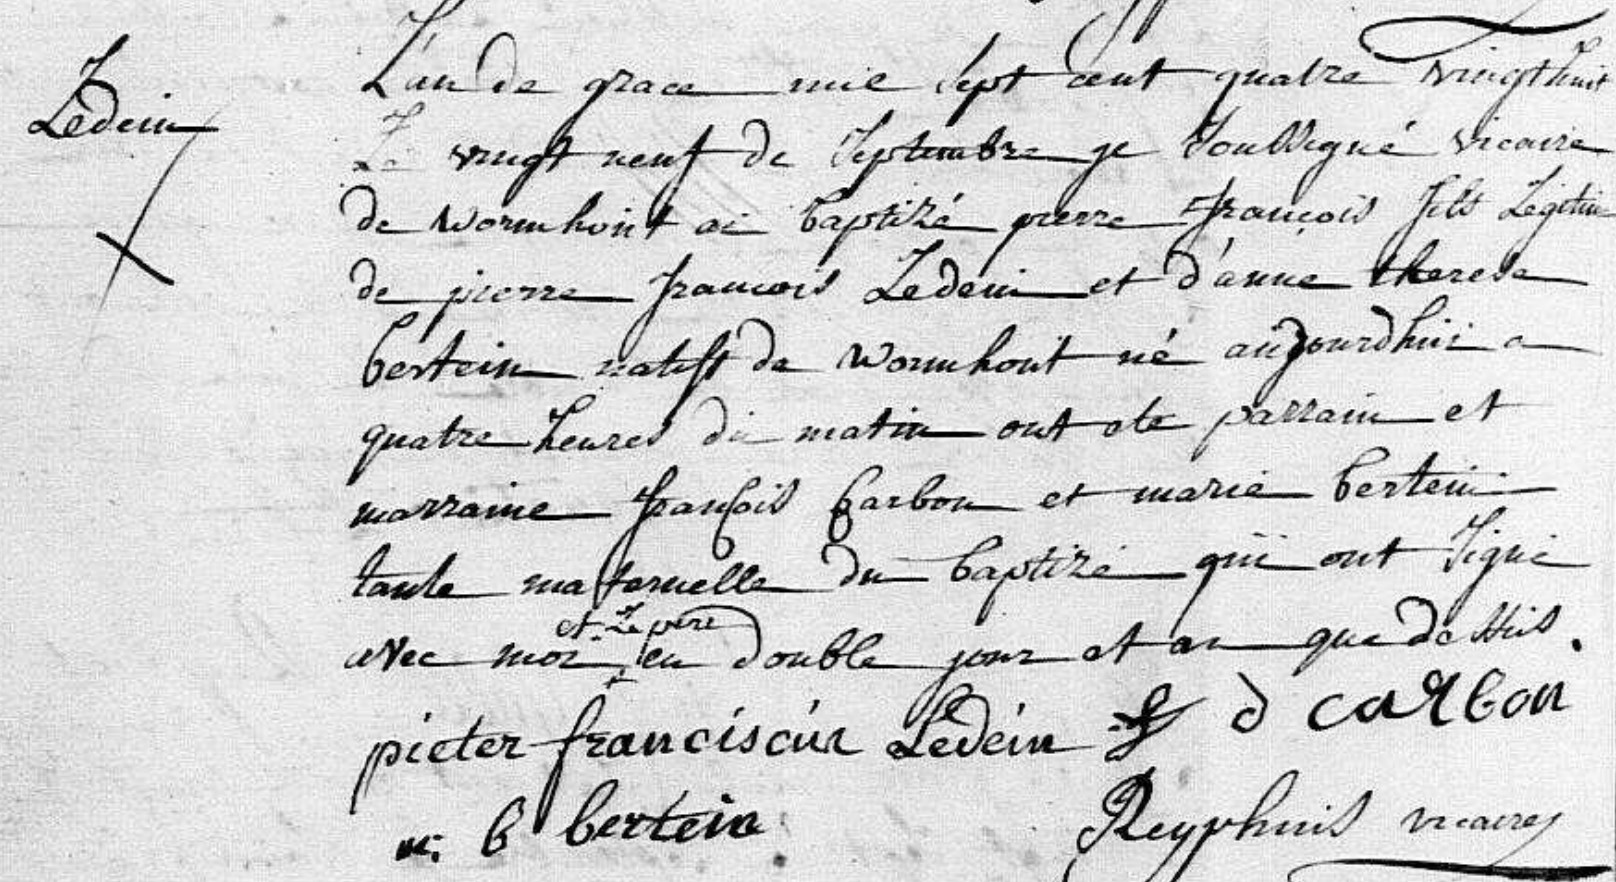 Ledein
L'an de grace mil sept cent quatre vingt huit
Le vingt neuf de Septembre je soussigné vicaire
de wormhout ai baptizé pierre françois fils Légitime
de pierre francois Ledein et d'anne therese
bertein natifs de wormhout né aujourdhui a
quatre heures du matin ont ete parrain et
marraine françois Carbon et marie bertein
tante maternelle du baptizé qui ont signé
et Le pere
avec moi en double jour et an que dessus.
pieter franciscus Ledein f d carbon
m: b bertein Reyphins vicaire